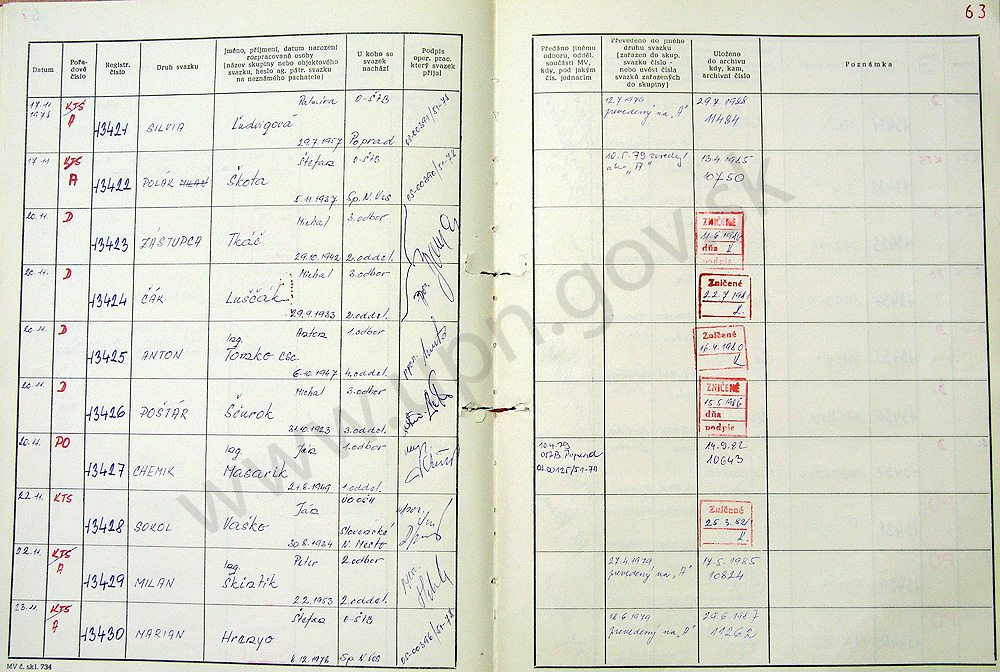 63
Datum
Pořadové číslo
Registr. číslo
Druh svazku
Jméno, příjmení, datum narození
rozpracované osoby
(název skupiny nebo objektového
svazku, heslo ag. pátr. svazku
na neznámého pachatele)
U koho se
svazek
nachází
Podpis
oper. prac.
který svazek
přijal
Předáno jinému
odboru, odděl.
součásti MV,
kdy, pod jakým
čís. jednacím
Převedeno do jiného
druhu svazku
(zařazen do skup.
svazku číslo -
nebo uvést čísla
svazků zařazených
do skupiny)
Uloženo
do archivu
kdy, kam,
archivní číslo
Poznámka
17.11. 1978 KTS A 13421 SILVIA Palmíra Ľudvigová 29.7.1957 O-ŠTB Poprad
12.7.1979 prevedený na "A" 29.7.1988 11484
17.11. KTS A 13422 POLÁK Štefan Škota 5.11.1937 O-ŠTB Sp. N. Ves
13.4.1985 10750
20.11. D 13423 ZÁSTUPCA Michal Tkáč 29.10.1942 3.odbor 2.oddel.
ZNIČENÉ dňa podpis
20.11. D 13424 ČÁK Michal Luščák 29.9.1933 3.odbor 2.oddel.
Zničené
20.11. D 13425 ANTON Ing. Anton Tomko CSc. 6.10.1947 1.odbor 4.oddel.
Zničené 16.4.1980
20.11. D 13426 POŠTÁR Michal Ščurok 31.10.1923 3.odbor 3.oddel.
ZNIČENÉ 15.5.1986 dňa podpis
20.11. PO 13427 CHEMIK Ing. Ján Masarik 21.6.1949 1.odbor 1.oddel.
10.4.79 Poprad 14.9.82 10643
22.11. KTS 13428 SOKOL Ján Vaško 30.8.1924 Slovenské N. Mesto
Zničené 25.3.1982
22.11. KTS A 13429 MILAN Ing. Peter Škirtik 2.2.1953 2.odbor 2.oddel.
27.4.1979 prevedený na "A" 17.5.1985 10824
23.11. KTS A 13430 MARIAN Štefan Hrenyo O-ŠTB Sp N Ves
18.6.1979 prevedený na "A" 29.6.1987 11262
MV č. skl. 734
www.upn.gov.sk